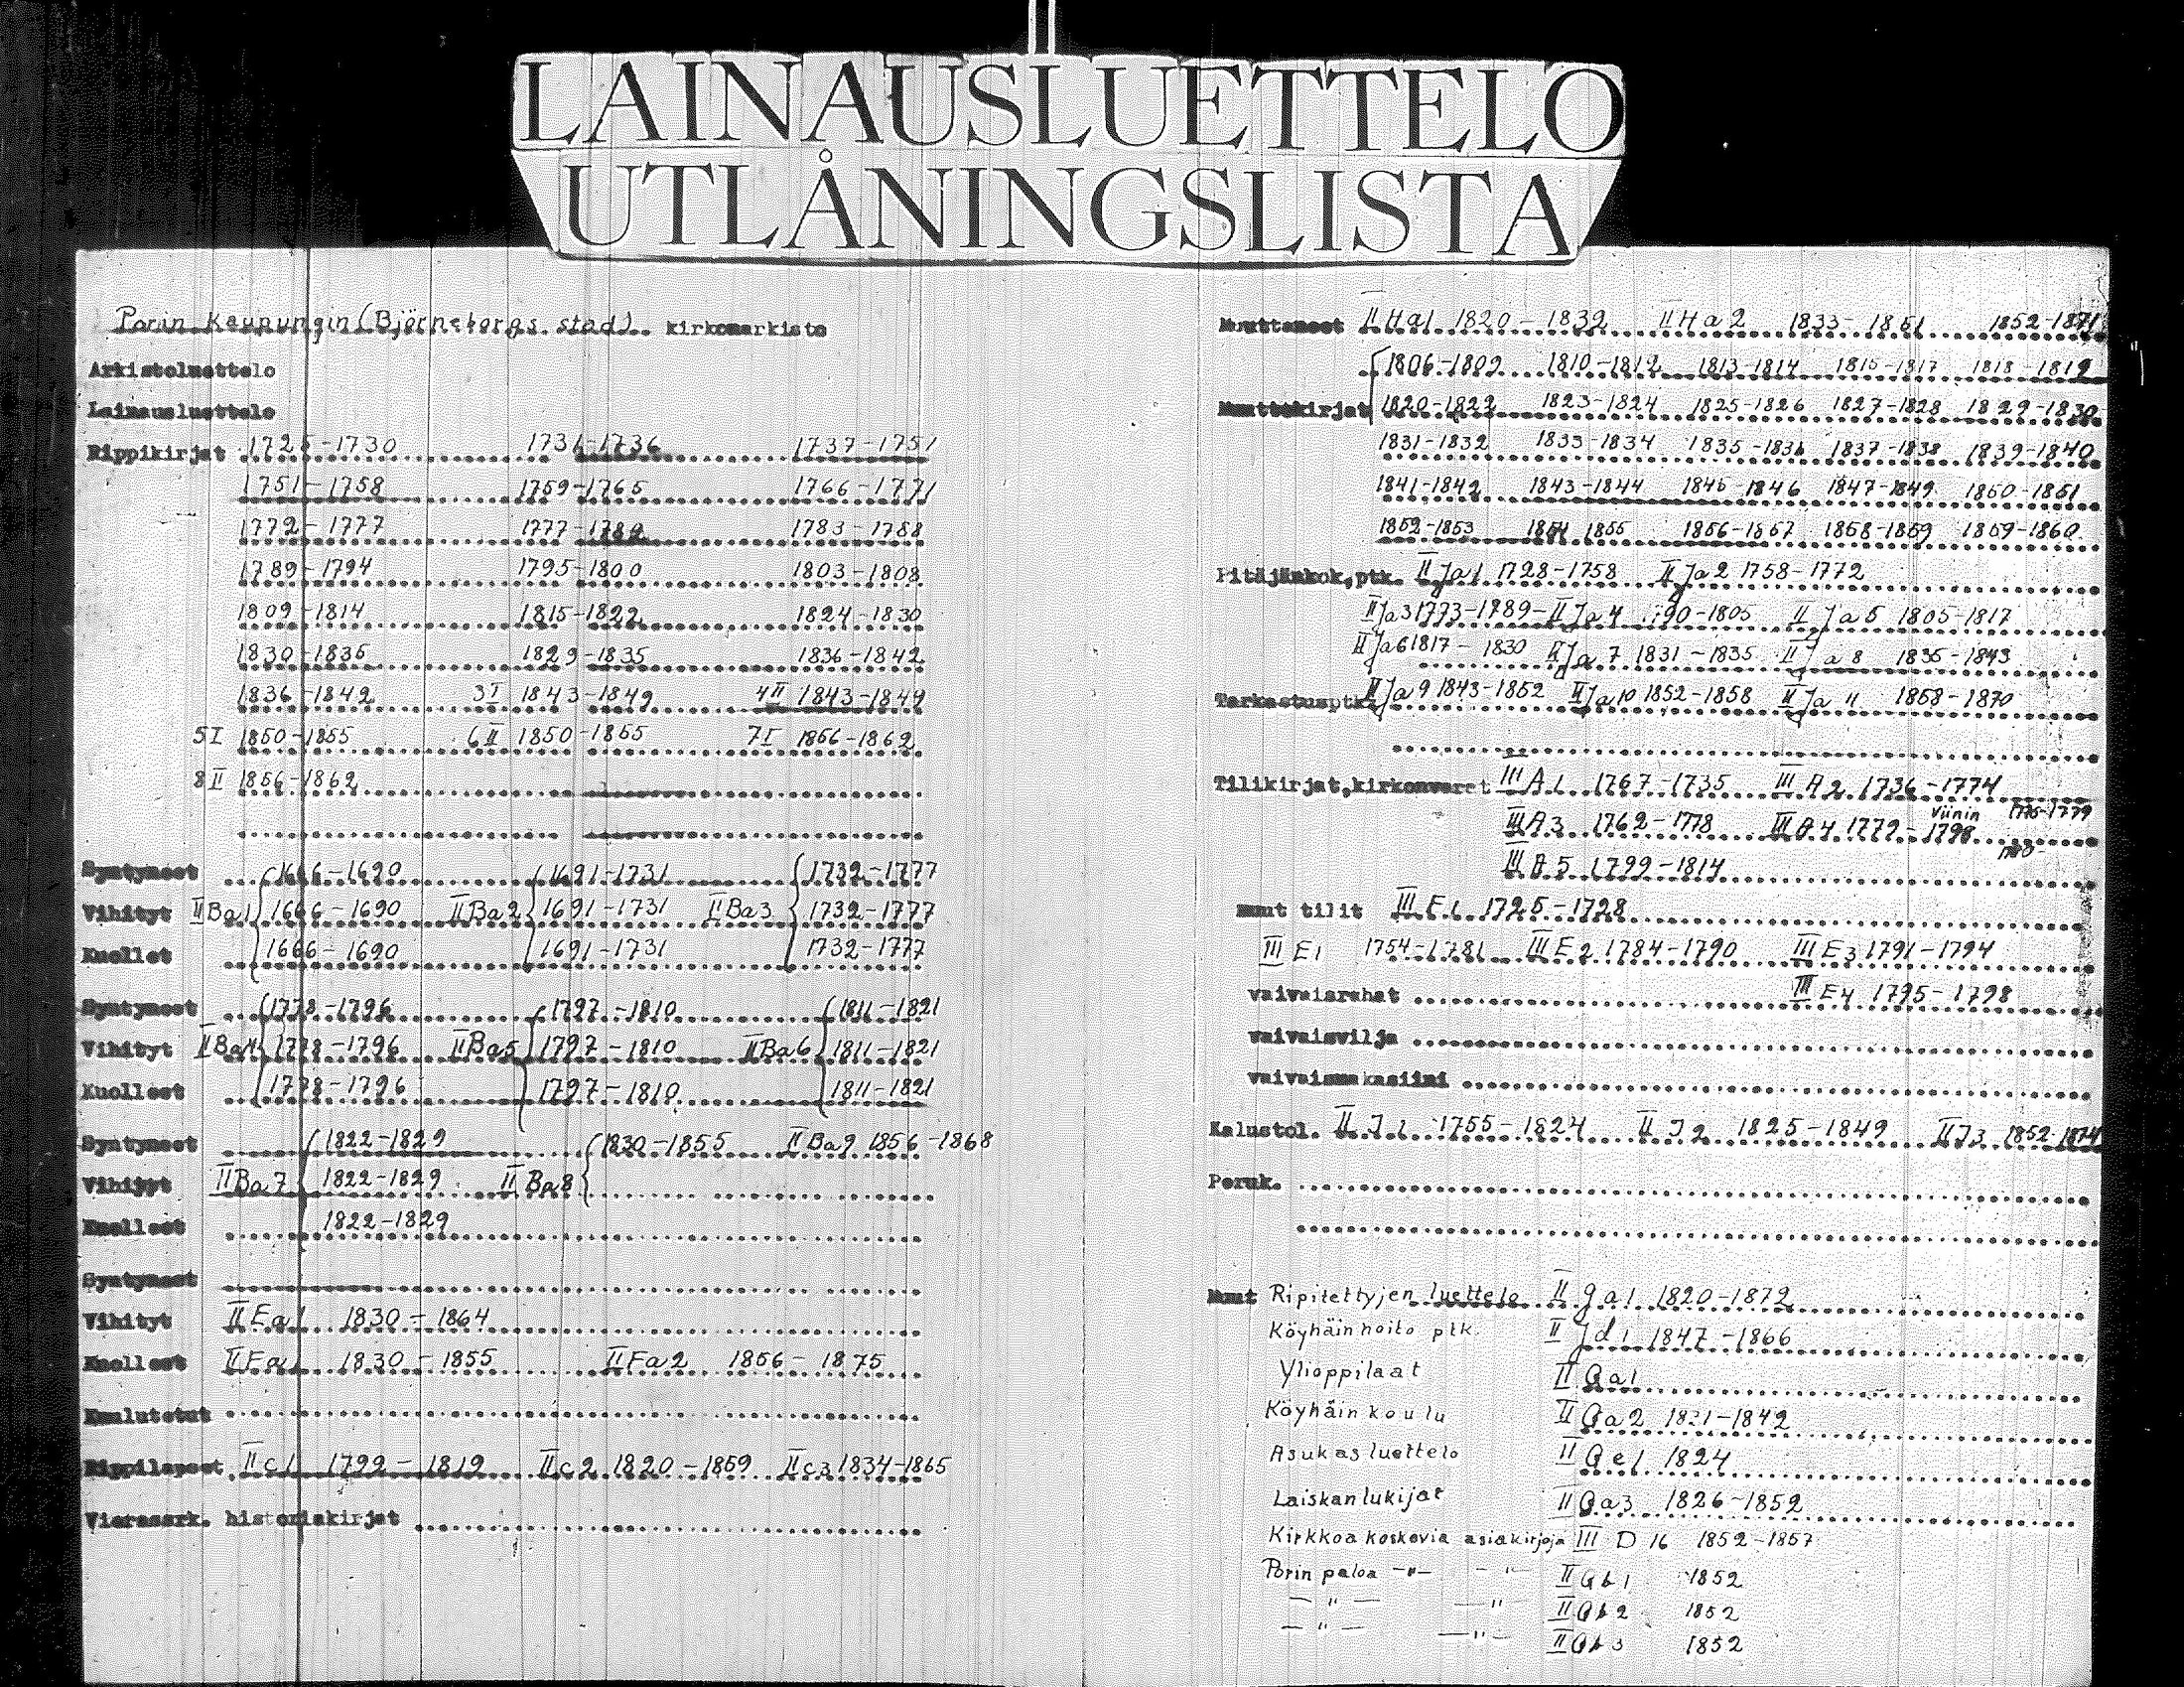 LAINAUSLUETTELO
UTLÅNINGSLISTA
Porin Kaupungin (Björneborgs. stad) kirkonarkisto
Arkistoluettelo
Lainausluettelo
Rippikirjat 1725-1730 1731-1736 1737-1751
1751-1758 1759-1765 1766-1771
1772-1777 1777-1782 1783-1788
1789-1794 1795-1800 1803-1808
1809-1814 1815-1822 1824-1830
1830-1835 1829-1835 1836-1842
1836-1842 3I 1843-1849 4II 1843-1849
5I 1850-1855 6II 1850-1855 7I 1856-1862
8II 1856-1862
Syntyneet 1666-1690 1691-1731 1732-1777
Vihityt IIBa1 1666-1690 IIBa2 1691-1731 IIBa3 1732-1777
Kuollet 1666-1690 1691-1731 1732-1777
Syntyneet 1778-1796 1797-1810 1811-1821
Vihityt IIBa4 1778-1796 IIBa5 1797-1810 IIBa6 1811-1821
Kuolleet 1778-1796 1797-1810 1811-1821
Syntyneet 1822-1829 1830-1855 IIBa9 1856-1868
Vihityt IIBa7 1822-1829 IIBa8
Kuolleet 1822-1829
Syntyneet
Vihityt IIEa1 1830-1864
Kuolleet IIFa1 1830-1855 IIFa2 1856-1875
Kuulutetut
Rippilapset IIc1 1799-1819 IIc2 1820-1859 IIc3 1834-1865
Vierasmrk. historiakirjat
Muuttaneet IIHa1 1820-1832 IIHa2 1833-1851 1852-1871
1806-1809 1810-1812 1813-1814 1815-1817 1818-1819
Muuttokirjat 1820-1822 1823-1824 1825-1826 1827-1828 1829-1830
1831-1832 1833-1834 1835-1836 1837-1838 1839-1840
1841-1842 1843-1844 1845-1846 1847-1849 1850-1851
1852-1853 1854 1855 1856-1857 1858-1859 1859-1860
Pitäjänkok,ptk. IIJa1 1728-1758 IIJa2 1758-1772
IIJa3 1773-1789- IIJa4 90-1805 IIJa5 1805-1817
IIJa6 1817-1830 IIJa7 1831-1835 IIJa8 1835-1843
Tarkastusptk. IIJa9 1843-1852 IIJa10 1852-1858 IIJa11 1858-1870
Tilikirjat,kirkonvarat IIIA1 1767-1735 IIIA2 1736-1774
IIIA3 1762-1778 IIIA4 1779-1798 Viinin 1775-1779
IIIA5 1799-1814
muut tilit IIIE1 1725-1728
IIIE1 1754-1781 IIIE2 1784-1790 IIIE3 1791-1794
vaivaisrahat IIIE4 1795-1798
vaivaisvilja
vaivaismakasiini
Kalustol. IIJ1 1755-1824 IIJ2 1825-1849 IIJ3 1852-1874
Peruk.
Muut Ripitettyjen luettelo IIga1 1820-1872
Köyhäinhoito ptk. IIJd1 1847-1866
Ylioppilaat IIGa1
Köyhäin koulu IIGa2 1821-1842
Asukasluettelo IIGe1 1824
Laiskanlukijat IIGa3 1826-1852
Kirkkoa koskevia asiakirjoja III D 16 1852-1857
Porin paloa -"- -"- IIGb1 1852
-"- -"- IIGb2 1852
-"- -"- IIGb3 1852